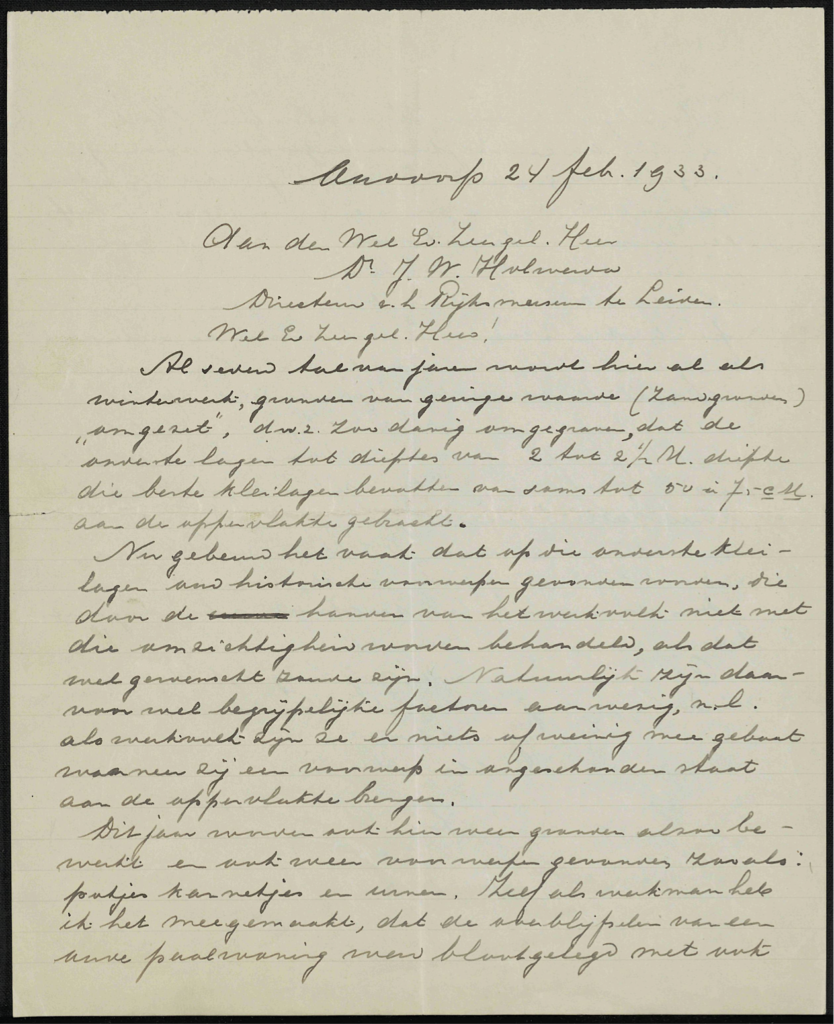 Anderp 24 feb. 1933.
Aan den Wel Ed. Zeergel. Heer
Dr. J. W. Holwerda
Directeur v. h. Rijksmuseum te Leiden.
Wel Ed Zeergel. Heer!
Al seder tal van jaren wordt hier al als
winterwerk, gronden van geringe waarde (Zandgronden)
"omgezet", d.w.z. zoo danig omgegraven, dat de
onderste lagen tot dieptes van 2 tot 2½ M. diepte
die beste kleilagen bevatten van soms tot 50 à 75 cM.
aan de oppervlakte gebracht.
Nu gebeurd het vaak dat op die onderste klei-
lagen oud historische voorwerpen gevonden worden, die
door de handen van het werkvolk niet met
die omzichtigheid worden behandeld, als dat
wel gewenscht zoude zijn. Natuurlijk zijn daar-
voor wel begrijpelijke factoren aanwezig, n.l.
als werkvolk zijn ze er niets of weinig mee gebaat
wanneer zij een voorwerp in ongeschonden staat
aan de oppervlakte brengen.
Dit jaar worden ook hier weer gronden alzoo be-
werkt en ook weer voorwerpen gevonden zooals:
potjes kannetjes en urnen. Zelf als werkman heb
ik het meegemaakt, dat de overblijfselen van een
oude paalwoning werd blootgelegd met ook